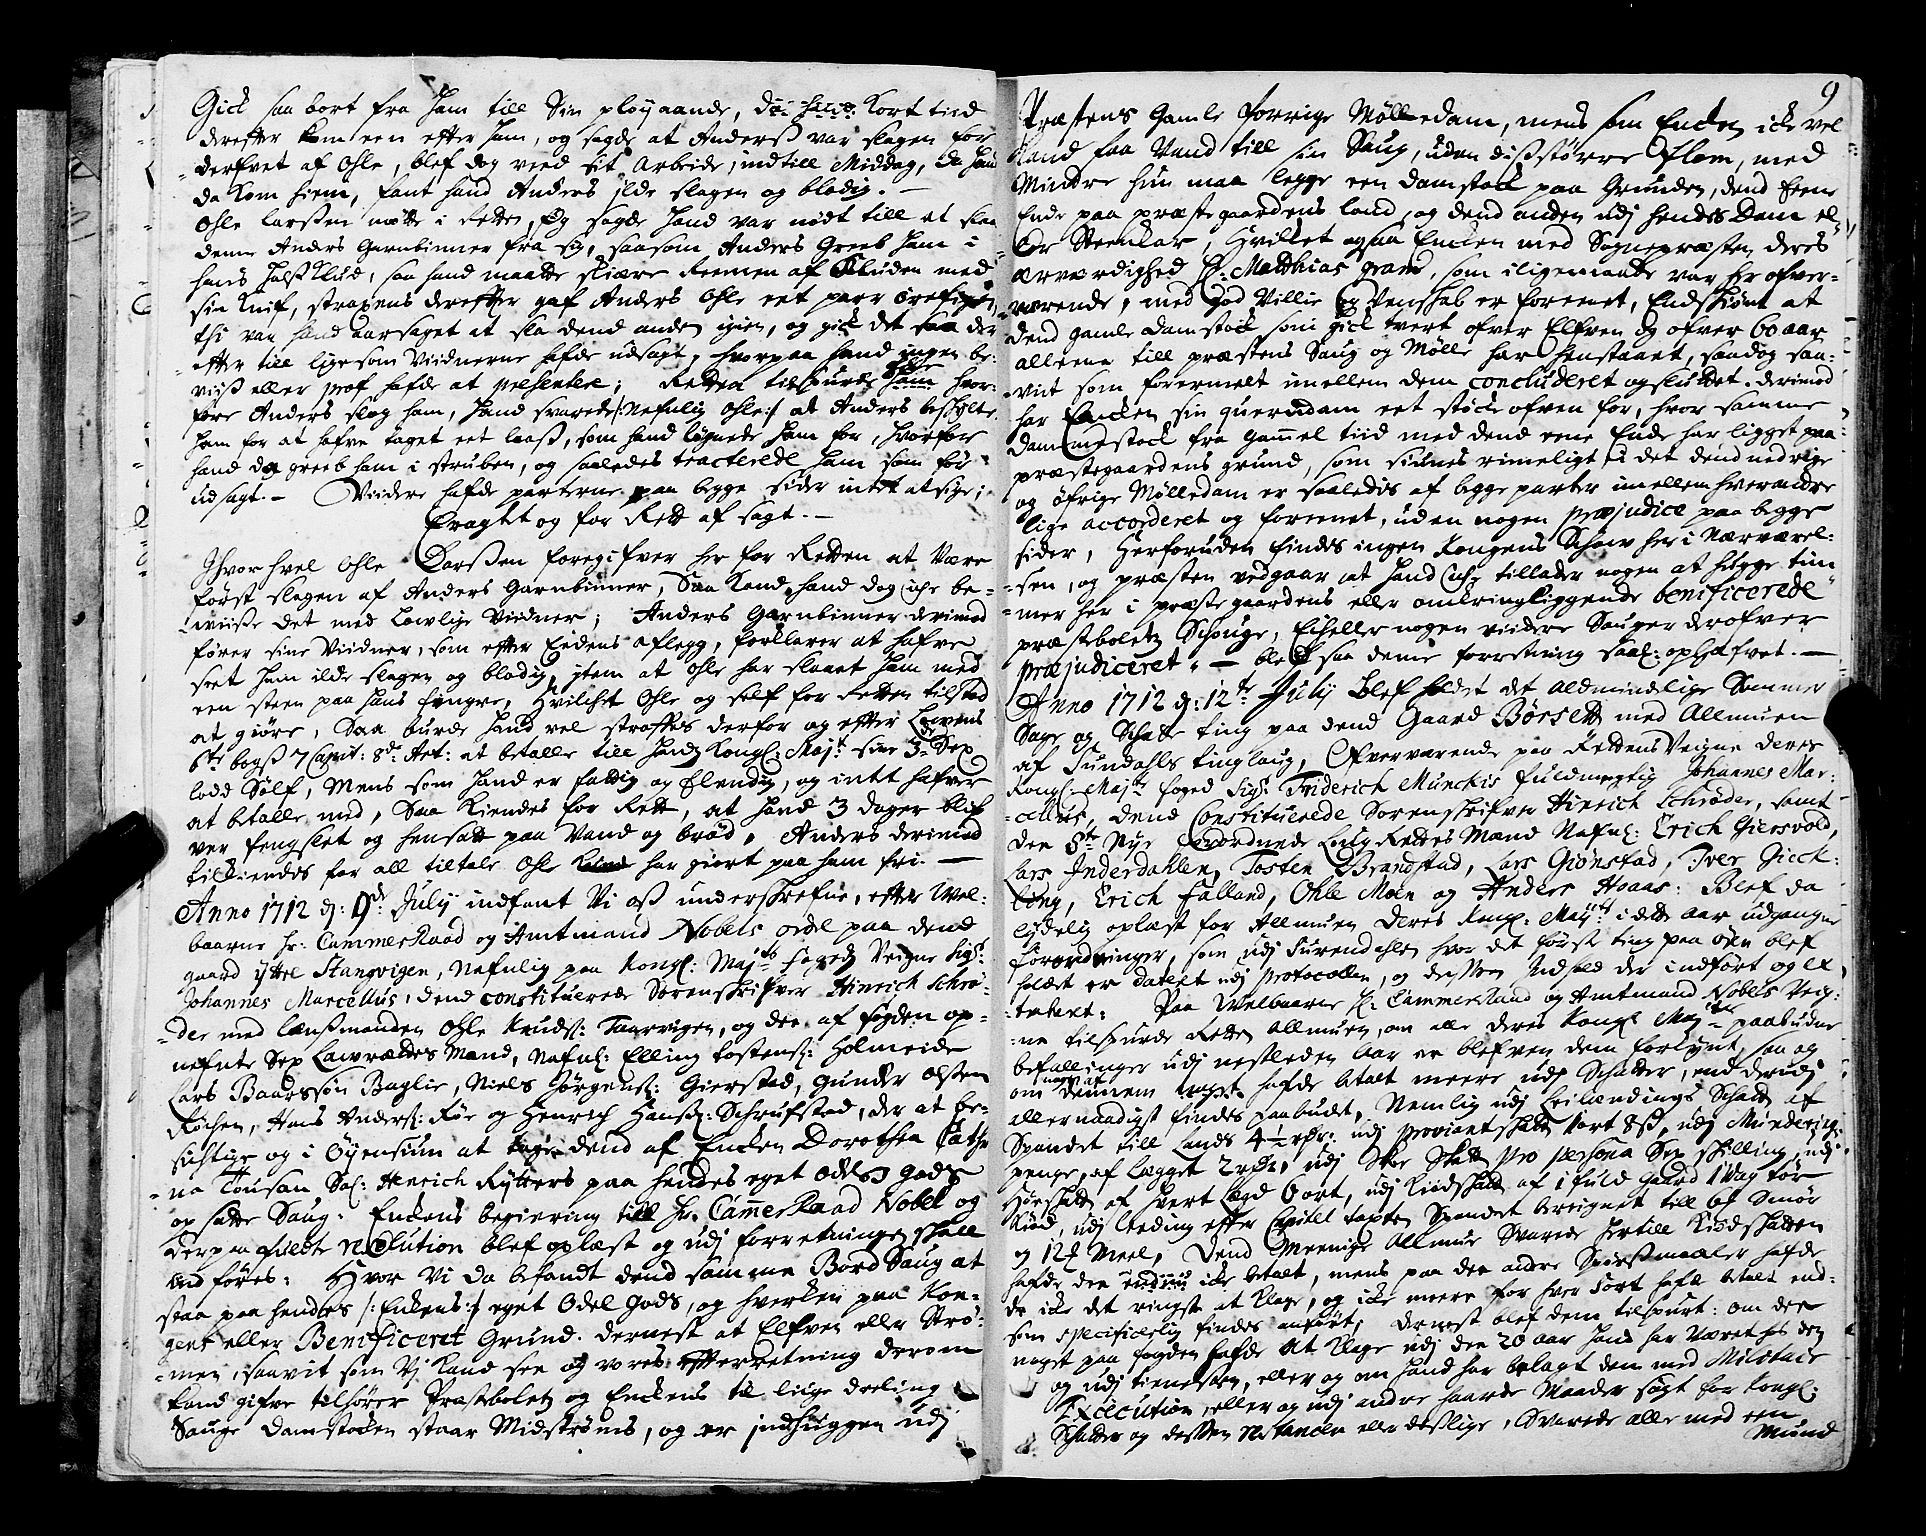 Gick saa bort fra ham till Sin ployaande, da kort tiid
derefter kom een efter ham, og sagde at Anderss var slagen for
derfvet af Ohle, blef dog veed sit arbeide, indtill Middag, da hand
da kom hiem, fant hand Anders ilde slagen og blodig. —
Ohle Larssen mötte i Retten, Og sagde hand var nödt till at slaa
denne Anders Garnbinner fra sig, saasom Anders Greeb ham i
hans halss klud, saa hand maatte skiære Reemen af Kluden med
sin knif, straxens derefter gaf Anders Ohle eet parr örefigen,
thi var hand aarsaget at sla dend anden igien, og gick det saa der
efter till lige som Viidnerne hafde udsagt, hvorpaa hand ingen be-
viiss eller prof hafde at presentere; Retten tilspurde ham hvor-
fore Anders slog ham, hand svarede /: Nefnlig Ohle :/ at Anders beskylte
ham for at hafve taget eet laass, som hand lögnede ham for, hvorfore
hand da greeb ham i struben, og saaledes tracterede ham som för
udsagt. — Viidere hafde parterne paa begge sider intet at sige;
Eragtet og for Rett af sagt. —
Jhvorhvel Ohle Larssen foregifver her for Retten at være
först slagen af Anders Garnbinner, Saa kand hand dog icke be-
viisse det med Lowlige Viidner; Anders Garnbinner derimod
förer sine Viidner, som efter Eedens aflegg, forklarer at hafve
seet ham ilde slagen og blodig, item at Ohle har slaaet ham med
een steen paa hans fingre, hvilchet Ohle og self for Retten tilstod
at giöre, Saa burde hand vel straffes derfor og efter Lowens
6te bogs 7 Capit: 8de Art: at betalle till hands Kongl: Majt sine 3de Sex
lodd Sölf, Mens som hand er fattig og Elendig, og intet hafver
at betalle med, Saa kiendes for Rett, at hand 3 dager blif
ver fengslet og hensatt paa Vand og bröd, Anders derimod
tilkiendes for all tiltale Ohle har giort paa ham fri. —
Anno 1712 d: 9de July indfant Vi oss underskrefne, efter Wel-
baarne hr: CammerRaad og Amtmand Nobels ordre paa dend
gaard ijttre Stangvigen, Nefnlig paa Kongl: Majts fogeds Veigne Sigr
Johannes Marcellus, dend constituerede Sorenskrifver Hinrich Schrö-
der med lænssmanden Ohle Knuds: Taarvigen, og dee af fogden op-
nefnte Sex Lawrættes Mænd, Nafnl: Elling Tostens: Holmeide
Lars Baarssön Baglie, Niels Jörgens: Gierstad, Gunder Olsen
Röchen, Hans Anders: Röe og Henrich Hans: Schrufstad, der at be-
sichtige og i Öyensuun at tage dend af Encken Dorothea Cathr
na Tonsan Sal: Henrich Rytters paa hendes eget odels gods
op satte Saug. Enckens begiering till hr. CammerRaad Nobel og
Derpaa fuldte resolution blef oplæst og udj forretningen skall
ind föres: Hvor Vi da befandt dend samme Bord Saug at
staa paa hendes /: Enckens :/ eget Odel Gods, og hverken paa Kon-
gens eller Benificeret Grund. dernest at Elfven eller Strö-
men, saavit som Vj kand see og vores efterretning derom
kand gifve tilhörer Præsteboletz og Enckens til liige deeling
Sauge damstocken staar Midströms, og er indhuggen udj
9
Præstens Gamle forrige Mölledam, mens som Encken icke vel
kand faa Vand till sin Saug, uden disstörre flom, med
Mindre hun maa legge een damstock paa Grunden, dend Eene
Ende paa præstegaardens land, og dend anden udj hendes Dam el-
ler Steenkar, hvilket ogsaa Encken med Sognepræsten deres
ærværdighed hr: Matthias gram, som iligemaade var her ofver-
værende, med god Villie og Venskab er foreenet, Endskiönt at
dend gamle damstock som gick tvert ofver Elfven og ofver 60 aar
alleene till præstens Saug og Mölle har henstaaet, saadog saa-
viit som formelt imellem dem concluderet og sluttet. derimod
har Encken sin quernedam eet stöcke ofven for, hvor samme
damstock fra gammel tiid med dend eene Ende har ligget paa
præstegaardens grund, som siunes rimeligt i det dend nedrige
og öfrige Mölledam er saaledis af begge parter imellem hverandre
lige accorderet og foreenet, uden nogen præjudice paa begge
sider, Herforuden findes ingen Kongens Schow her i Nærværel-
sen, og præsten vedgaar at hand icke tillader nogen at hugge tim-
mer her i præstegaardens eller omkringliggende benificerede
præstboletz Schouge, Eiheller nogen viidere Sauger derofver
præjudiceret. — blef saa denne forretning saal: ophæfvet. —
Anno 1712 d: 12te Julij blef holdet det Aldmindelige Sommer
Sage og Schatte ting paa dend Gaard Börsett med Allmuen
af Sundahls tinglaug, Ofverværende paa Rettens Veigne deres
Kongl: Majts foged Sigr Friderich Munckis fuldmegtig Johannes Mar-
cellus, dend Constituerede Sorenskrifver Hinrich Schröder, samt
den 8te Nye Laug Rettes Mænd Nafnl: Erich Giersvold,
Lars Inderdahlen, Tosten Brandstad, Lars Grönstad, Iver Jieck-
ling, Erich Falland, Ohle Moen og Anders Hoaas: Blef da
lydelig oplæst for Allmuen Deres Kongl: Mayts i dette Aar udgangne
forordninger, som udj Surendahlen hvor det förste ting paa öen blef
holdet er datert udj Protocollen, og dessen Indhold der indfört og ex-
trahert: Paa Welbaarne hr: CammerRaad og Amtmand Nobels Veig-
ne tilspurde Retten Allmuen, om alle deres Kongl Majts paabudne
befallinger udj nestleden Aar er blefven dem forkynt, saa og
om nogen af dennem hafde betalt meere udj Schatter, end derudj
allernaadigst findes paabudet, Nemlig udj Leilændings Schatt af
Spandet till Lands 4½ rdr: udj Proviantskatt 1ort 8ss, udj Mundering
penge, af lægget 2 rdr, udj Skoe Skatt pro persona Sex skilling, udj
Höeskatt af hvert Lægd 6 ort, udj Kiödskatt af 1 fuld Gaard 1 Vag för
kiöd, udj leeding efter Capitel taxten Spandet bereignet till Smör
og 12 Meel, Dend Meenige Allmue Svarede hertill Kiödskatten
hafde dee endnu icke betalt, mens paa dee andre Spörssmaaler hafde
de icke det ringeste at klage, og icke meere for hver sort hafde betalt end
som specificelig findes anfört, dernest blef dem tilspurt: om dee
noget paa fogden hafde at klage udj den 20 aar hand har Været hos dem
og udj tieniesten, eller og om hand har belagt dem med Militair
Execution, eller og udj andre haarde Maader sögt for Kongl:
Schatter og dessen restancer eller desslige, Svarede alle med een
Mund